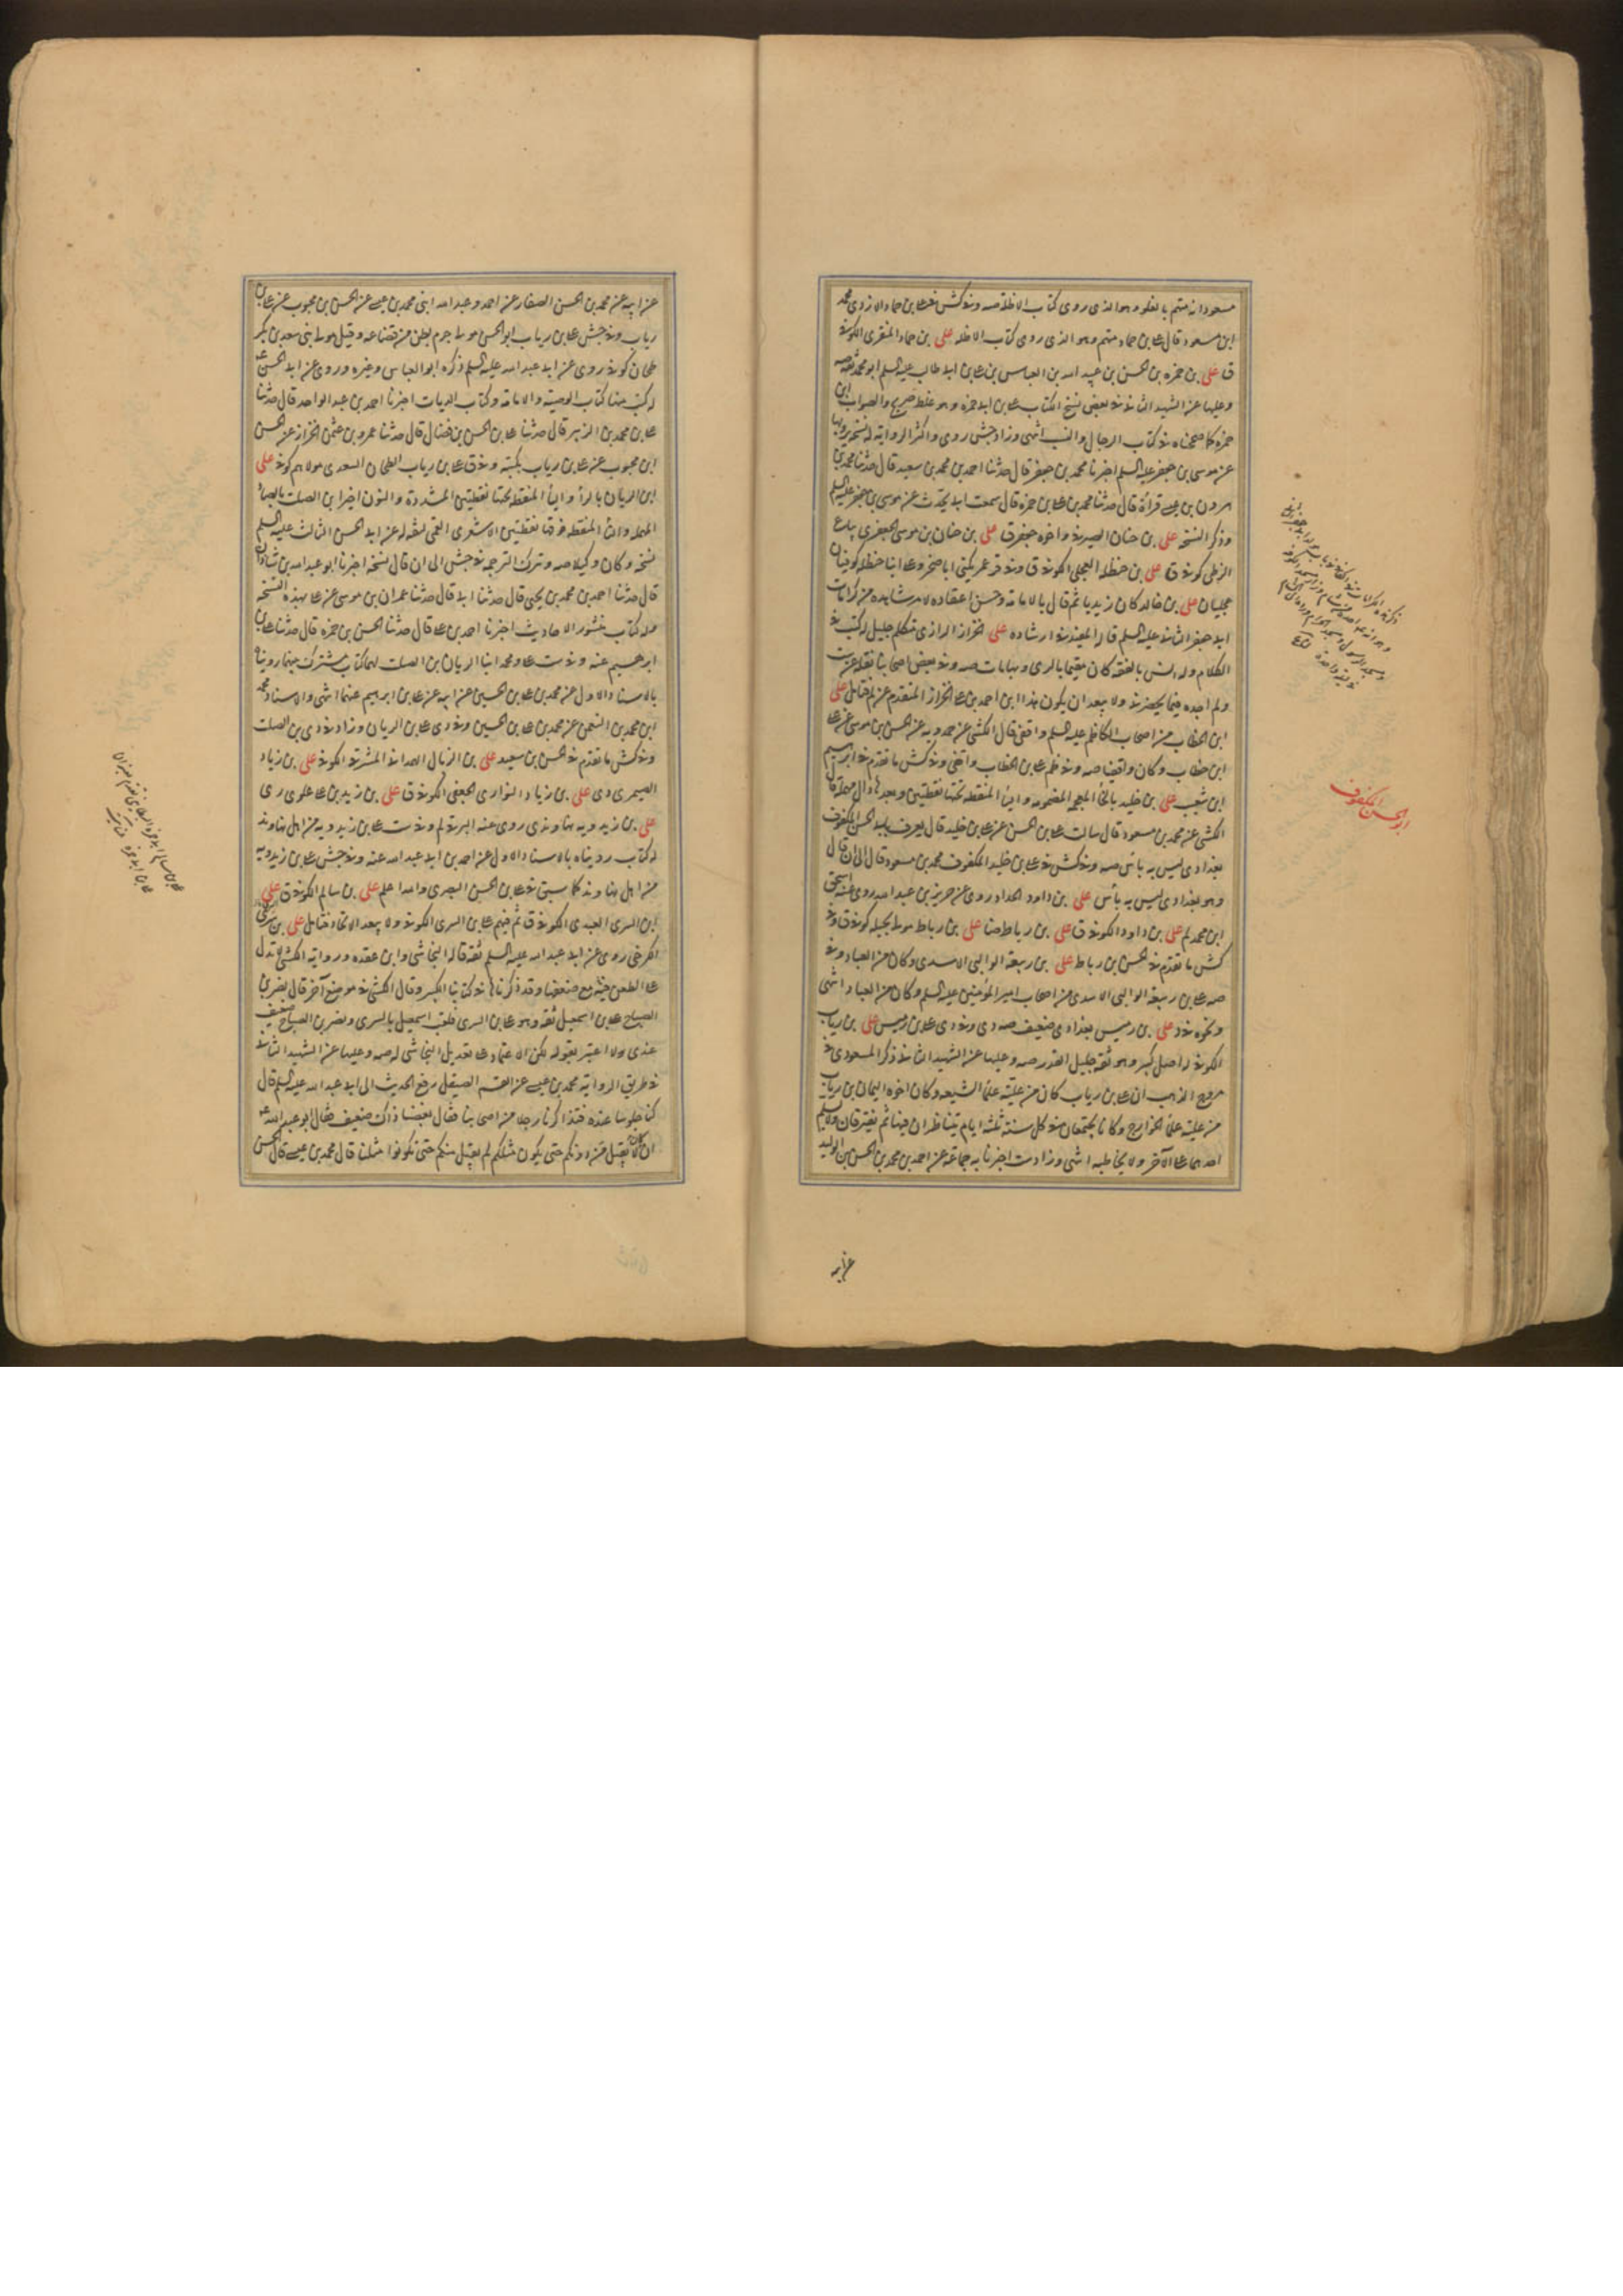 مسعود انه متهم بالغلو وهو الذي روى كتاب الاظلة صه وفي كش في علي بن حماد الازدي محمد
ابن مسعود قال علي بن حماد متهم وهو الذي روى كتاب الاظله علي بن حماد المنقري الكوفي
ق علي بن حمزه بن الحسن بن عبيد الله بن العباس بن علي بن ابي طالب عليه السلم ابو محمد ثقه صه
وعليها عن الشهيد الثاني في بعض نسخ الكتاب علي بن ابي حمزه وهو غلط صريح والصواب ابن
حمزه كما صححناه في كتاب الرجال والنسب انتهى وزاد جش روى واكثر الرواية له نسخه يرويها
عن موسى بن جعفر عليه السلم اخبرنا محمد بن جعفر قال حدثنا احمد بن محمد بن سعيد قال حدثنا محمد بن
قراءة قال حدثنا محمد بن علي بن حمزه قال سمعت ابي يحدث عن موسى بن جعفر عليه السلم
وذكر النسخه علي بن حنان الصيرفي واخوه جعفر ق علي بن حنان بن موسى الجعفري بياع
الزطي كوفي ق علي بن حنظله العجلي الكوفي ق وفي قر عمر يكنى ابا صخر وعلي ابنا حنظله كوفيان
عجليان علي بن خالد كان زيديا ثم قال بالامامة وحسن اعتقاده لامر شاهده من كرامات
ابي جعفر الثاني عليه السلم قاله المفيد في ارشاده علي الخزاز الرازي متكلم جليل له كتب في
الكلام وله انس بالفقه كان مقيما بالري وبها مات صه وفي بعض اصحابنا نقله عن ست
ولم اجده فيما يحضرني ولا يبعد ان يكون هذا ابن احمد بن علي الخزاز المتقدم عن لم فتامل علي
ابن الخطاب من اصحاب الكاظم عليه السلم واقفي قال الكشي عن حمدويه عن الحسن بن موسى عن علي
ابن خطاب وكان واقفيا صه وفي ظم علي بن الخطاب واقفي وفي كش ما تقدم في ابراهيم
ابن شعيب علي بن خليد بالخاء المعجمه المضمومه والياء المنقطه تحتها نقطتين وبعدها دال مهمله قال
الكشي عن محمد بن مسعود قال سالت علي بن الحسن عن علي بن خليد قال يعرف بابي الحسن المكفوف
بغدادي ليس به باس صه وفي كش في علي بن خليد المكفوف محمد بن مسعود قال الى ان قال
وهو بغدادي ليس به بأس علي بن داود الحداد روى عن حريز بن عبد الله روى عنه اسحق
ابن محمد لم علي بن داود الكوفي ق علي بن رباط ضا علي بن رباط مولى بجيله كوفي ق وفي
كش ما تقدم في الحسن بن رباط علي بن ربيعة الوالبي الاسدي وكان من العباد وفي
صه علي بن ربيعة الوالبي الاسدي من اصحاب امير المؤمنين عليه السلم وكان من العباد انتهى
ونحوه في د علي بن رميس بغدادي ضعيف صه دي وفي دي علي بن رميس علي بن رياب
الكوفي له اصل كبير وهو ثقه جليل القدر صه وعليها عن الشهيد الثاني ذكر المسعودي في
مروج الذهب ان علي بن رياب كان من علية علماء الشيعه وكان اخوه اليمان بن رياب
من علية علماء الخوارج وكانا يجتمعان في كل سنة ثلثه ايام يتناظران فيها ثم يفترقان ولا يسلم
احدهما على الآخر ولا يخاطبه انتهى وزاد ست اخبرنا به جماعة عن احمد بن محمد بن الحسن بن الوليد
ابو الحسن المكفوف
عن ابيه
عن ابيه عن محمد بن الحسن الصفار عن احمد وعبد الله ابني محمد بن عيسى عن الحسن بن محبوب عن علي بن
رياب وفي جش علي بن رياب ابو الحسن مولى جرم بطن من قضاعه وقيل مولى بني سعد بن بكر
طحان كوفي روى عن ابي عبد الله عليه السلم ذكره ابو العباس وغيره وروى عن ابي الحسن ع
له كتب منها كتاب الوصية والامامة وكتاب الديات اخبرنا احمد بن عبد الواحد قال حدثنا
علي بن محمد بن الزبير قال حدثنا علي بن الحسن بن فضال قال حدثنا عمرو بن عثمن الخزاز عن الحسن
ابن محبوب عن علي بن رياب بكتبه وفي ق علي بن رياب الطحان السعدي مولاهم كوفي علي
ابن الريان بالراء والياء المنقطه تحتها نقطتين المشددة والنون اخيرا بن الصلت بالصاد
المهمله والتاء المنقطه فوقها نقطتين الاشعري القمي ثقه له عن ابي الحسن الثالث عليه السلم
نسخه وكان وكيلا صه وترك الترجمه في جش الى ان قال نسخه اخبرنا ابو عبد الله بن شاذان
قال حدثنا احمد بن محمد بن يحيى قال حدثنا ابي قال حدثنا عمران بن موسى عن علي بهذه النسخه
وله كتاب منثور الاحاديث اخبرنا احمد بن علي قال حدثنا الحسن بن حمزه قال حدثنا علي بن
ابرهيم عنه وفي ست علي ومحمد ابنا الريان بن الصلت لهما كتاب مشترك بينهما رويناه
بالاسناد الاول عن محمد بن علي بن الحسين عن ابيه عن علي بن ابرهيم عنهما انتهى والاسناد محمد
ابن محمد بن النعمن عن محمد بن علي بن الحسين وفي دي علي بن الريان وزاد في دي بن الصلت
وفي كش ما تقدم في الحسن بن سعيد علي بن الزيال الهمداني المشرقي الكوفي علي بن زياد
الصيمري دي علي بن زياد النواري الجعفي الكوفي ق علي بن زيد بن علي علوي ري
علي بن زيدويه نهاوندي روى عنه البرقي لم وفي ست علي بن زيدويه من اهل نهاوند
له كتاب رويناه بالاسناد الاول عن احمد بن ابي عبد الله عنه وفي جش علي بن زيدويه
من اهل نهاوند كما سبق في علي بن الحسن البصري والله اعلم علي بن سالم الكوفي ق علي
ابن السري العبدي الكوفي ق ثم فيهم علي بن السري الكوفي ولا يبعد الاتحاد فتامل علي بن السري
الكرخي روى عن ابي عبد الله عليه السلم ثقه قاله النجاشي وابن عقده ورواية الكشي لا تدل
على الطعن فيه مع ضعفها وقد ذكرناها في كتابنا الكبير وقال الكشي في موضع آخر قال نصر بن
الصباح علي بن اسمعيل ثقه وهو علي بن السري فلقب اسمعيل بالسري ونصر بن الصباح ضعيف
عندي ولا اعتبر بقوله لكن الاعتماد على تعديل النجاشي له صه وعليها عن الشهيد الثاني
في طريق الرواية محمد بن عيسى عن القسم الصيقل رفع الحديث الى ابي عبد الله عليه السلم قال
كنا جلوسا عنده فتذاكرنا رجلا من اصحابنا فقال بعضنا ذاك ضعيف فقال ابو عبد الله ع
ان كان لا يقبل ممن دونكم حتى يكون مثلكم لم يقبل منكم حتى تكونوا مثلنا قال محمد بن عيسى قال الحسن